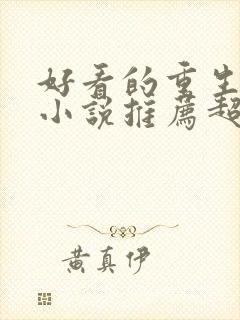 好看的重生
小說推薦超
黃真伊